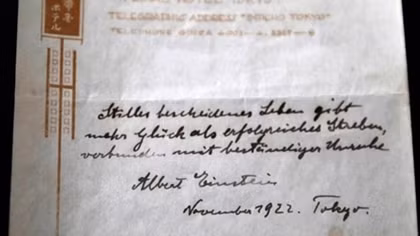 帝
国
ホ
テ
ル
HOTEL TOKYO
TELEGRAPHIC ADDRESS
TELEPHONE GINZA
Stilles bescheidenes Leben gibt
mehr Glück als erfolgreiches Streben,
verbunden mit beständiger Unruhe
Albert Einstein
November 1922. Tokyo.